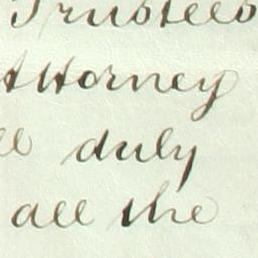 Trustees
Attorney
duly
all the